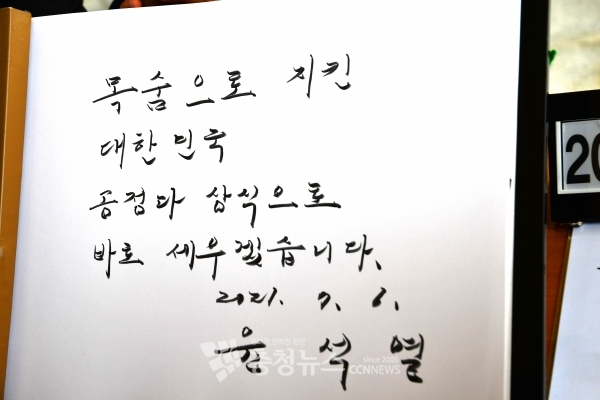 목숨으로 지킨
대한민국
공정과 상식으로
바로 세우겠습니다.
2021. 7. 6.
윤 석 열
충청뉴스
since 2005
CCNNEWS
20